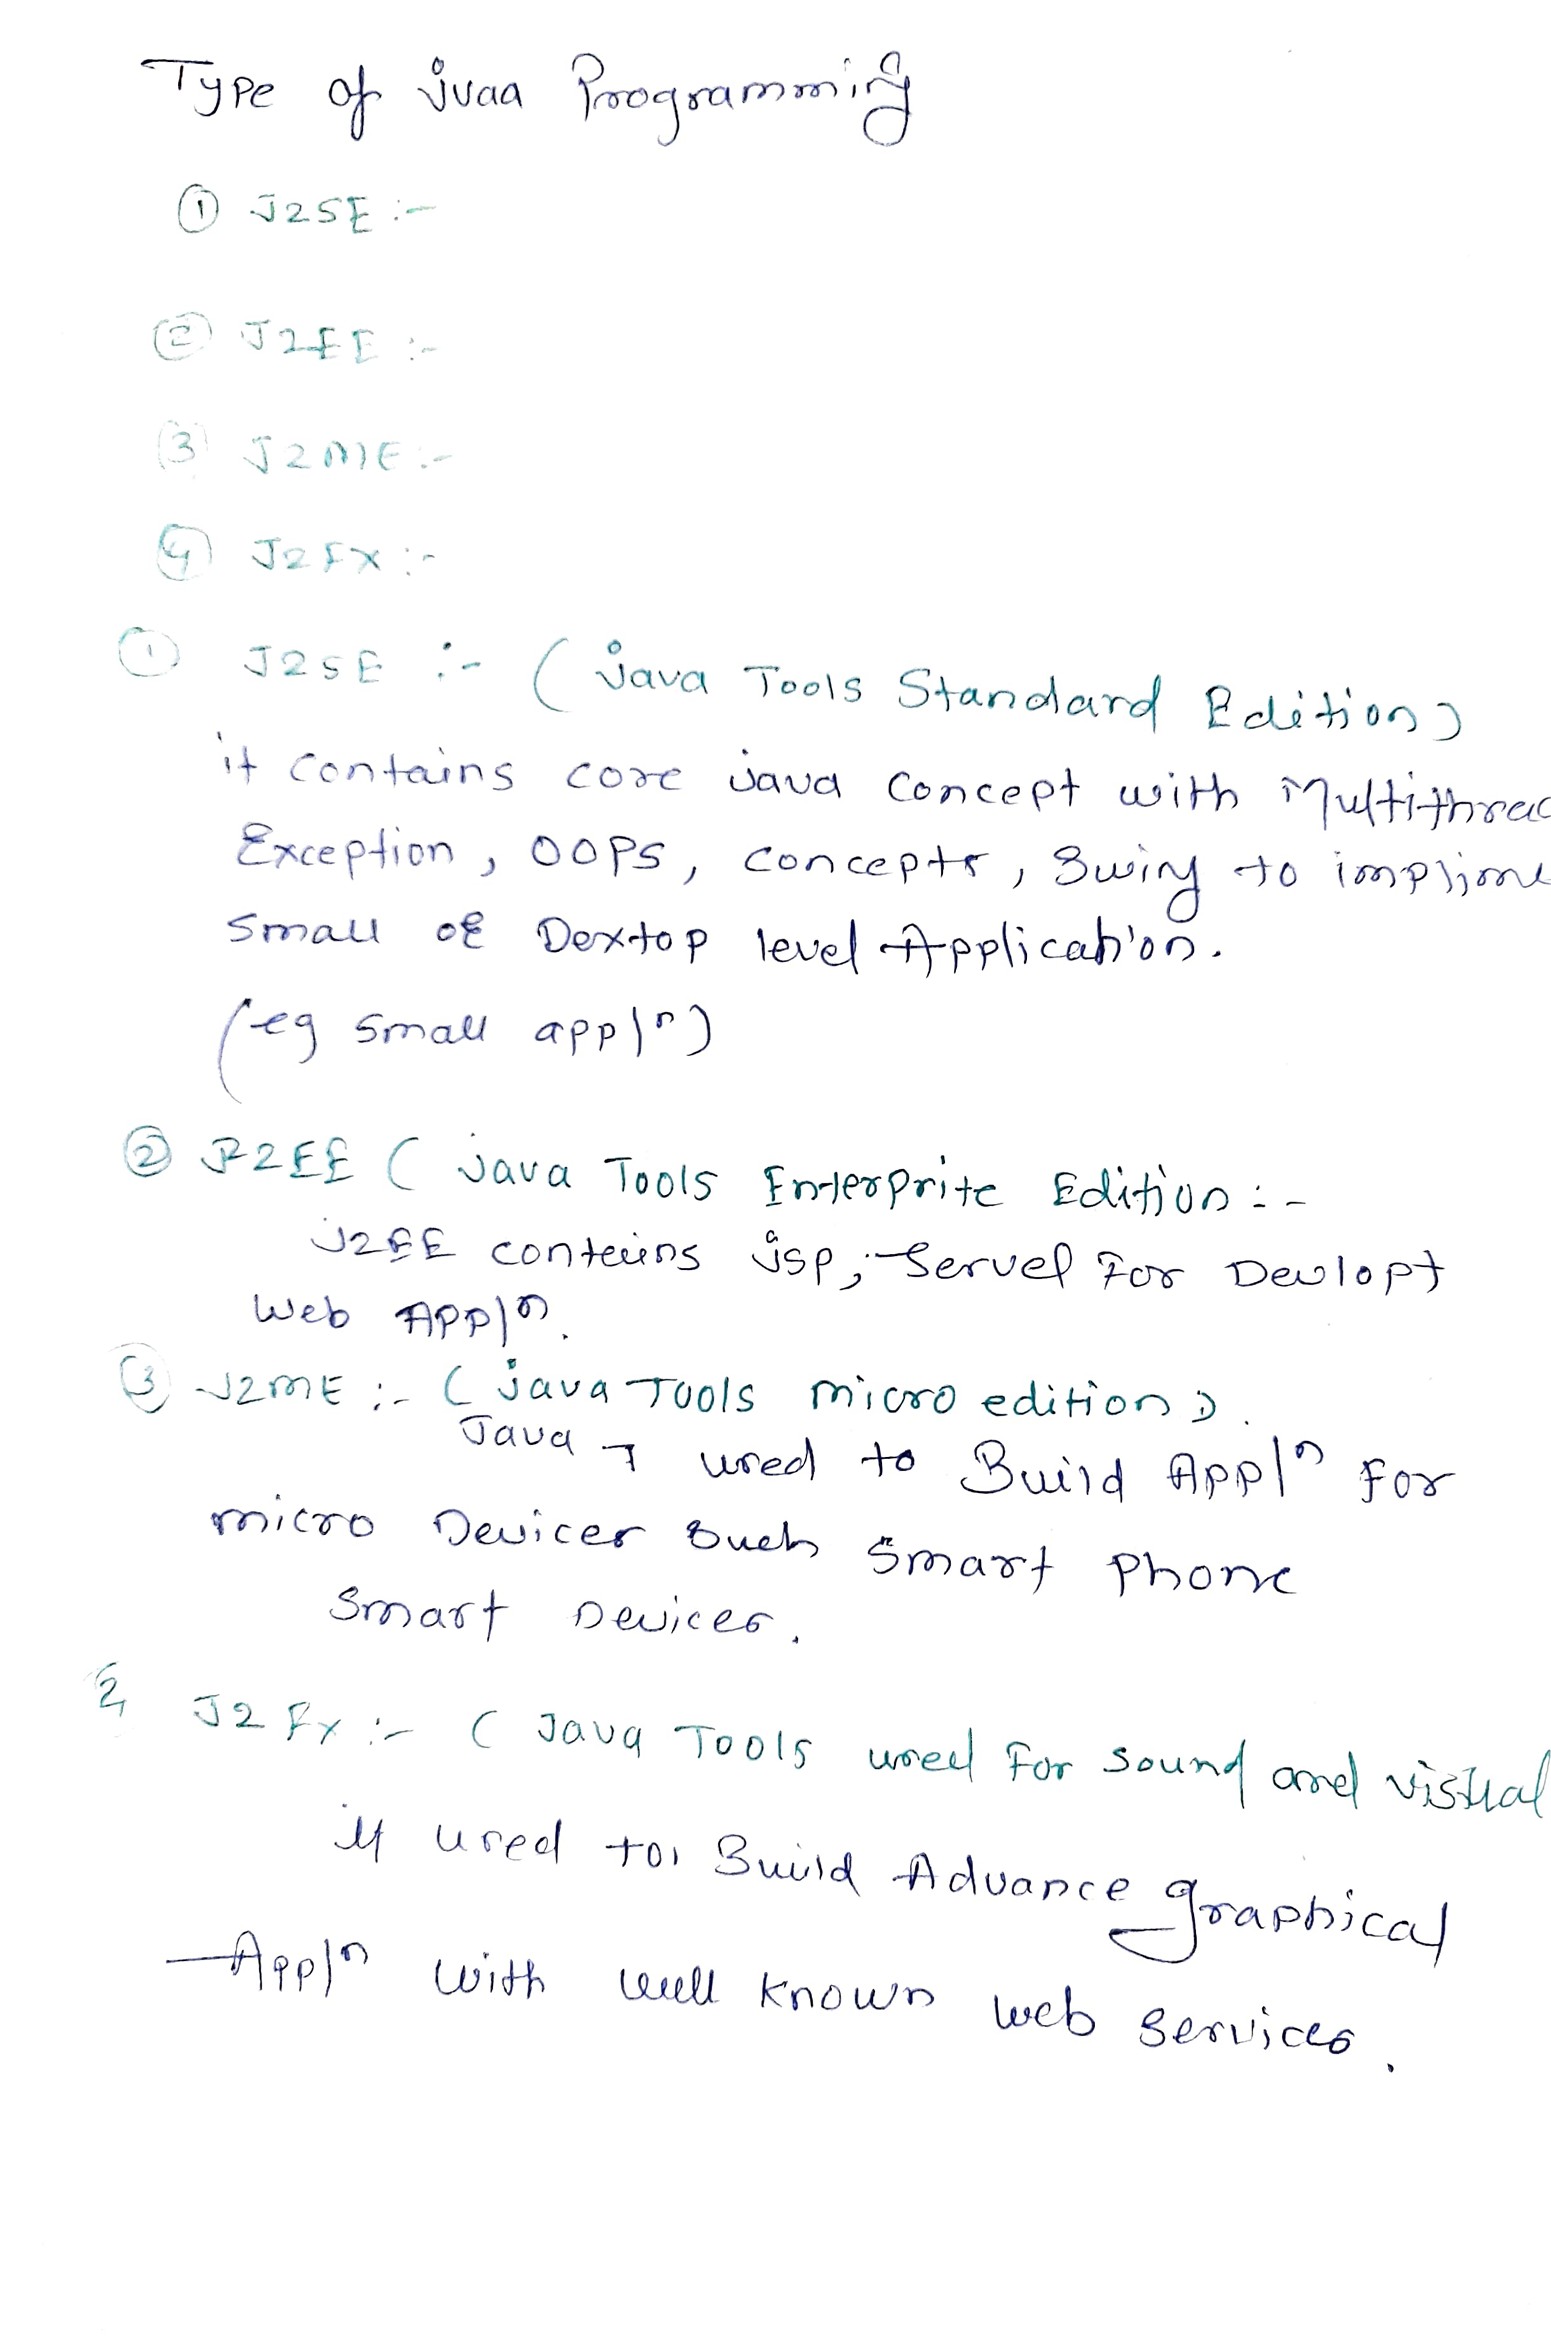 Type of jvaa Programming
① J2SE :-
② J2EE :-
③ J2ME :-
④ J2FX :-
① J2SE :- (java Tools Standard Edition)
it contains core java concept with Multithreac
Exception, OOPS, concepts, Swing to implime
small of Dextop level Application.
(eg small appln)
② J2EE ( java Tools Enterprite Edition :-
J2EE conteins jsp, Servel For Devlopt
Web Appln.
③ J2ME :- (java Tools micro edition).
Java used to Build Appln For
micro Devices such Smart Phone
Smart Devices.
J2FX :- ( Java Tools used For sound and
it used to Build Advance graphical
Appln with well known web services.